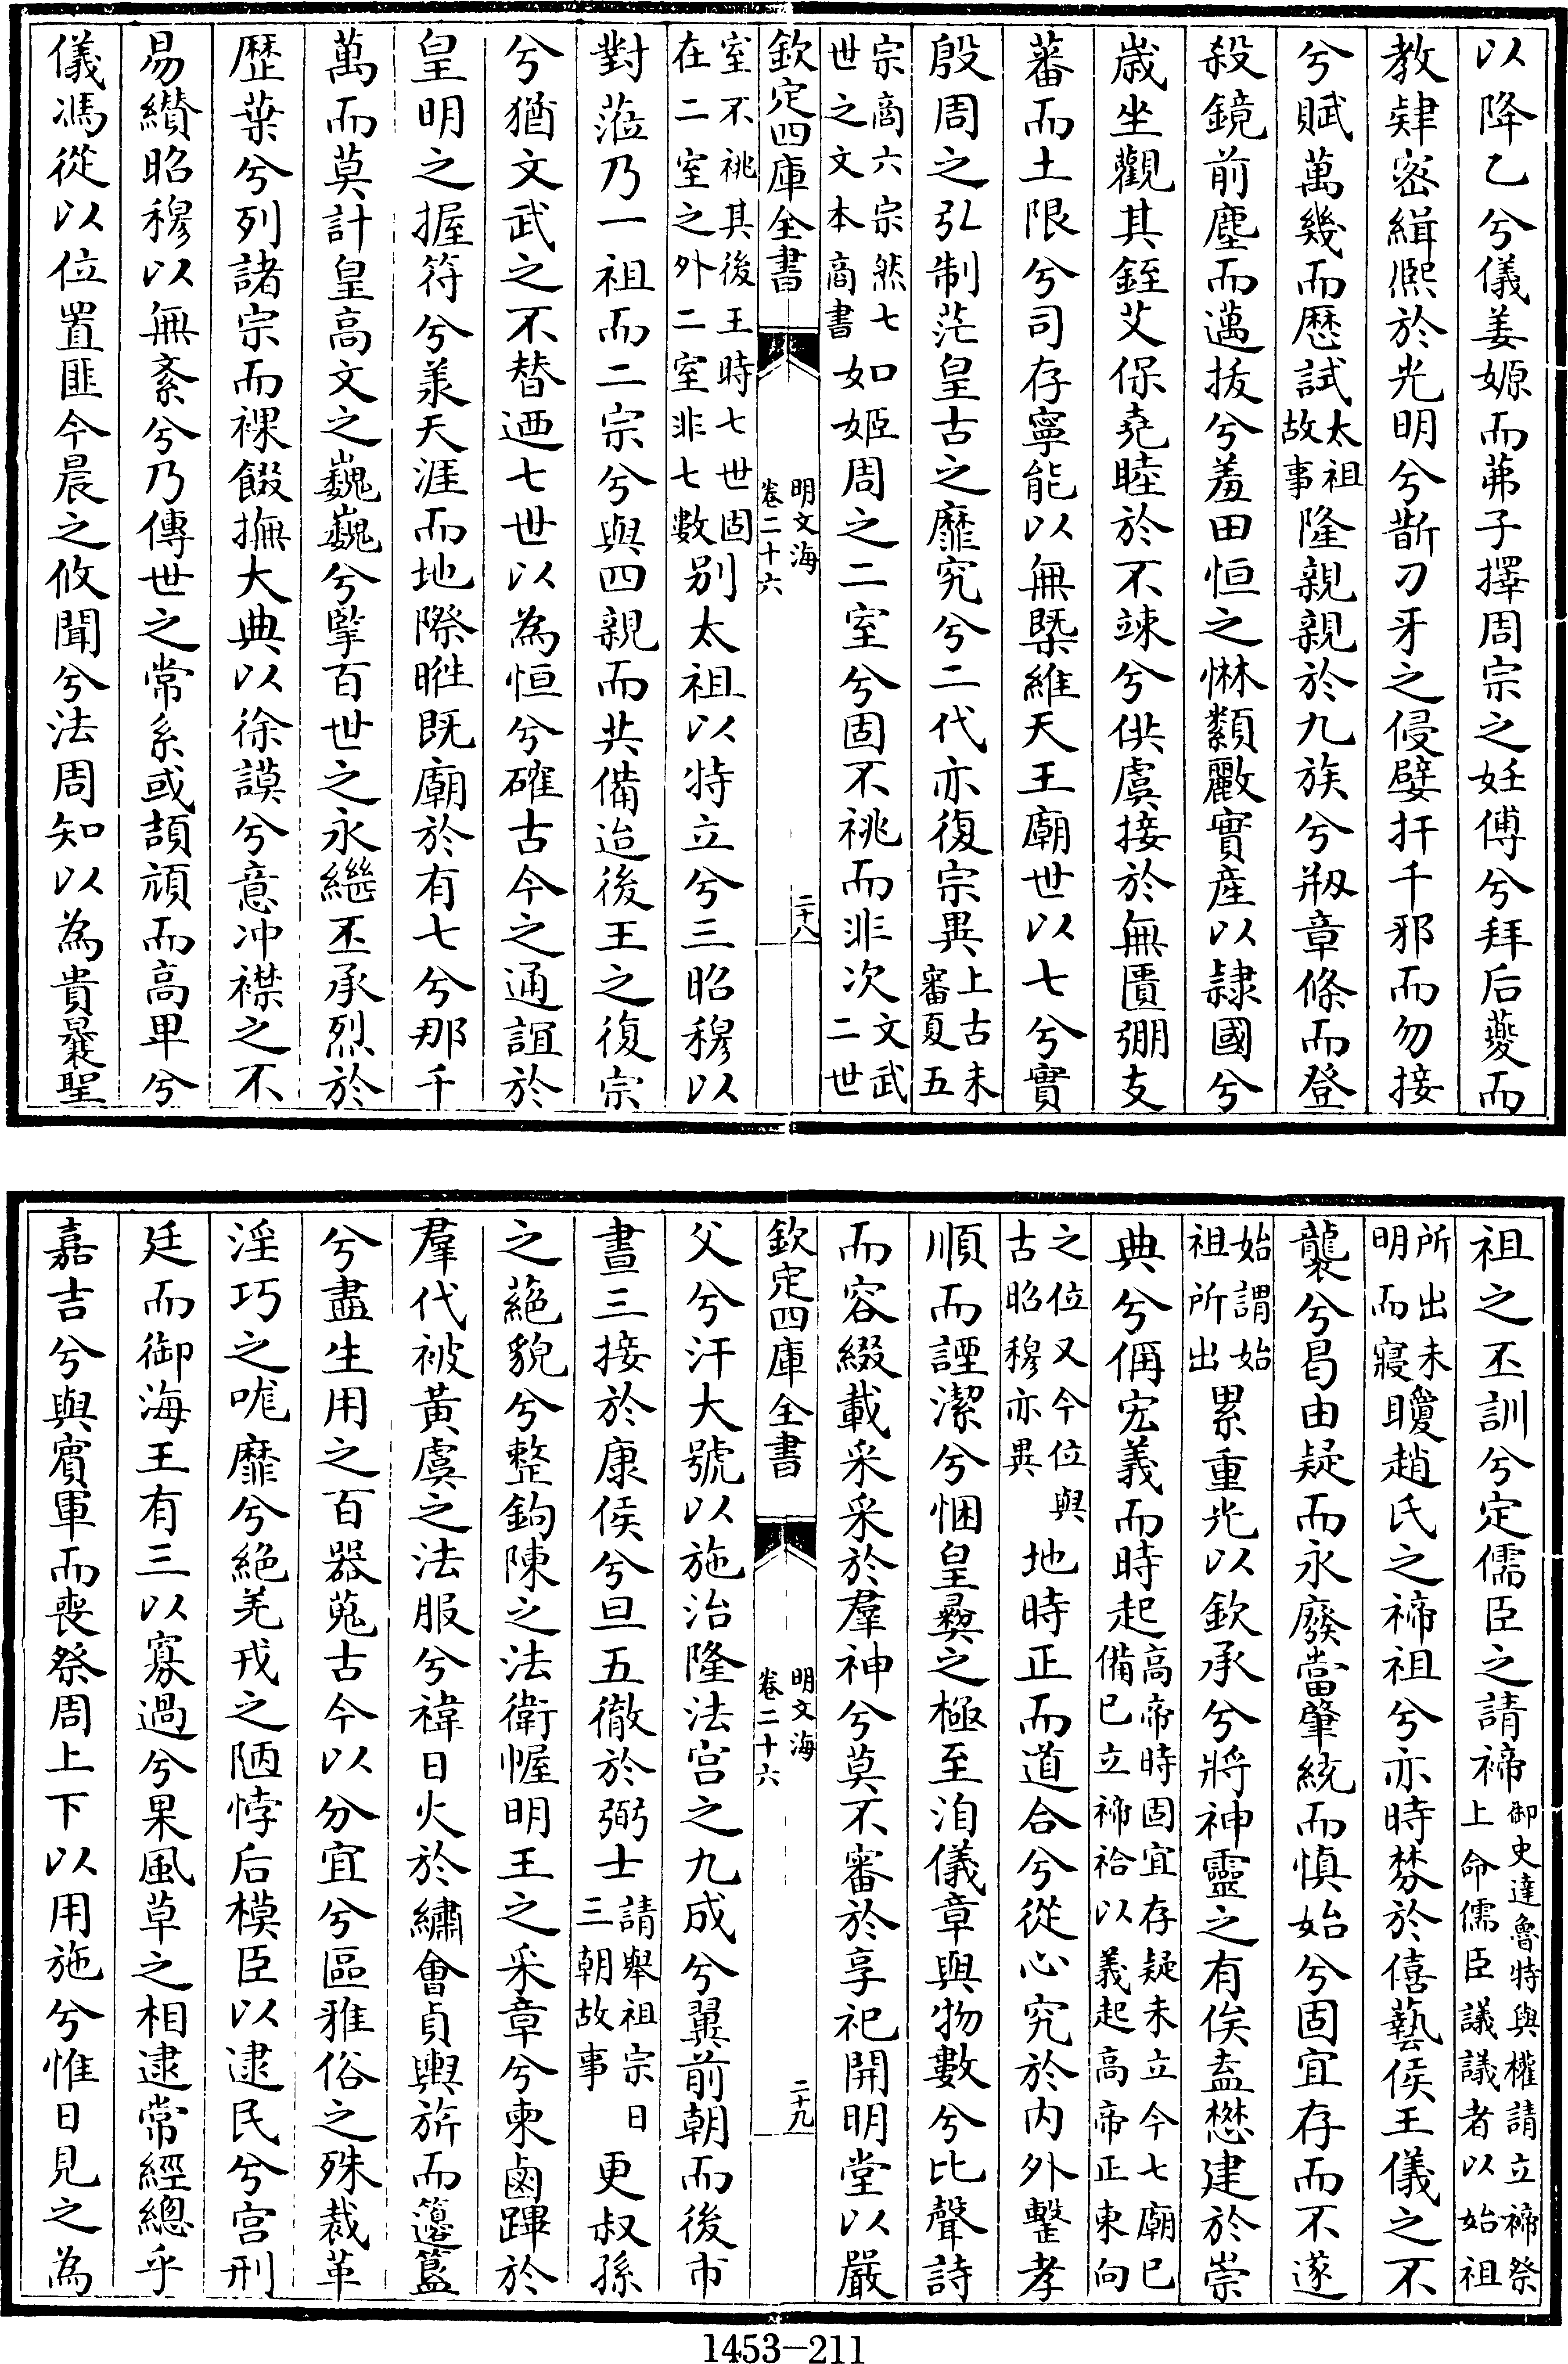 以降乙兮儀姜嫄而茀子擇周宗之妊傅兮拜后夔而
教肄密緝熙於光明兮斮刀牙之侵嬖扞千邪而勿接
兮賦萬幾而歷試太祖故事隆親親於九族兮剏章條而登
殺鏡前塵而邁拔兮羞田恒之惏纇歠實産以隷國兮
歳坐觀其銍艾保堯睦於不竦兮供虞接於無匱弸支
蕃而土限兮司存寧能以無槩維天王廟世以七兮實
殷周之弘制茫皇古之靡究兮二代亦復宗異上古未審夏五
世之文本商書宗商六宗然七如姬周之二室兮固不祧而非次文武二世
欽定四庫全書 明文海 卷二十六 二十八
室不祧其後王時七世固在二室之外二室非七數别太祖以特立兮三昭穆以
對蒞乃一祖而二宗兮與四親而共備迨後王之復宗
兮猶文武之不替迺七世以為恒兮確古今之通誼於
皇明之握符兮羕天涯而地際暀既廟於有七兮那千
萬而莫計皇高文之巍巍兮擥百世之永繼丕承烈於
歷葉兮列諸宗而祼餟撫大典以徐謨兮意冲襟之不
易纘昭穆以無紊兮乃傳世之常系或頡頏而高畀兮
儀馮從以位置匪今晨之攸聞兮法周知以為貴曩聖
祖之丕訓兮定儒臣之請禘御史達魯特與權請立禘祭上命儒臣議議者以始祖
所出未明而寢瞹趙氏之禘祖兮亦時棼於僖藝侯王儀之不
襲兮曷由疑而永廢當肇統而慎始兮固宜存而不遂
始謂始祖所出累重光以欽承兮將神靈之有俟盍懋建於崇
典兮偁宏義而時起高帝時固宜存疑未立今七廟已備已立禘祫以義起高帝正東向
之位又今位與古昭穆亦異地時正而道合兮從心究於内外毄孝
順而諲潔兮悃皇彞之極至洎儀章與物數兮比聲詩
而容綴載采采於羣神兮莫不審於享祀開明堂以嚴
欽定四庫全書 明文海 卷二十六 二十九
父兮汗大號以施治隆法宫之九成兮翼前朝而後市
晝三接於康侯兮旦五徹於弼士請舉祖宗日三朝故事更叔孫
之蕝貌兮整鉤陳之法衛幄明王之采章兮柬鹵蹕於
羣代被黄虞之法服兮褘日火於繡會貞輿旂而籩簋
兮盡生用之百器蒐古今以分宜兮區雅俗之殊裁革
淫巧之哤靡兮絶羌戎之陋悖后模臣以逮民兮宫刑
廷而御海王有三以寡過兮果風草之相逮常經總乎
嘉吉兮與賓軍而喪祭周上下以用施兮惟日見之為
1453-211